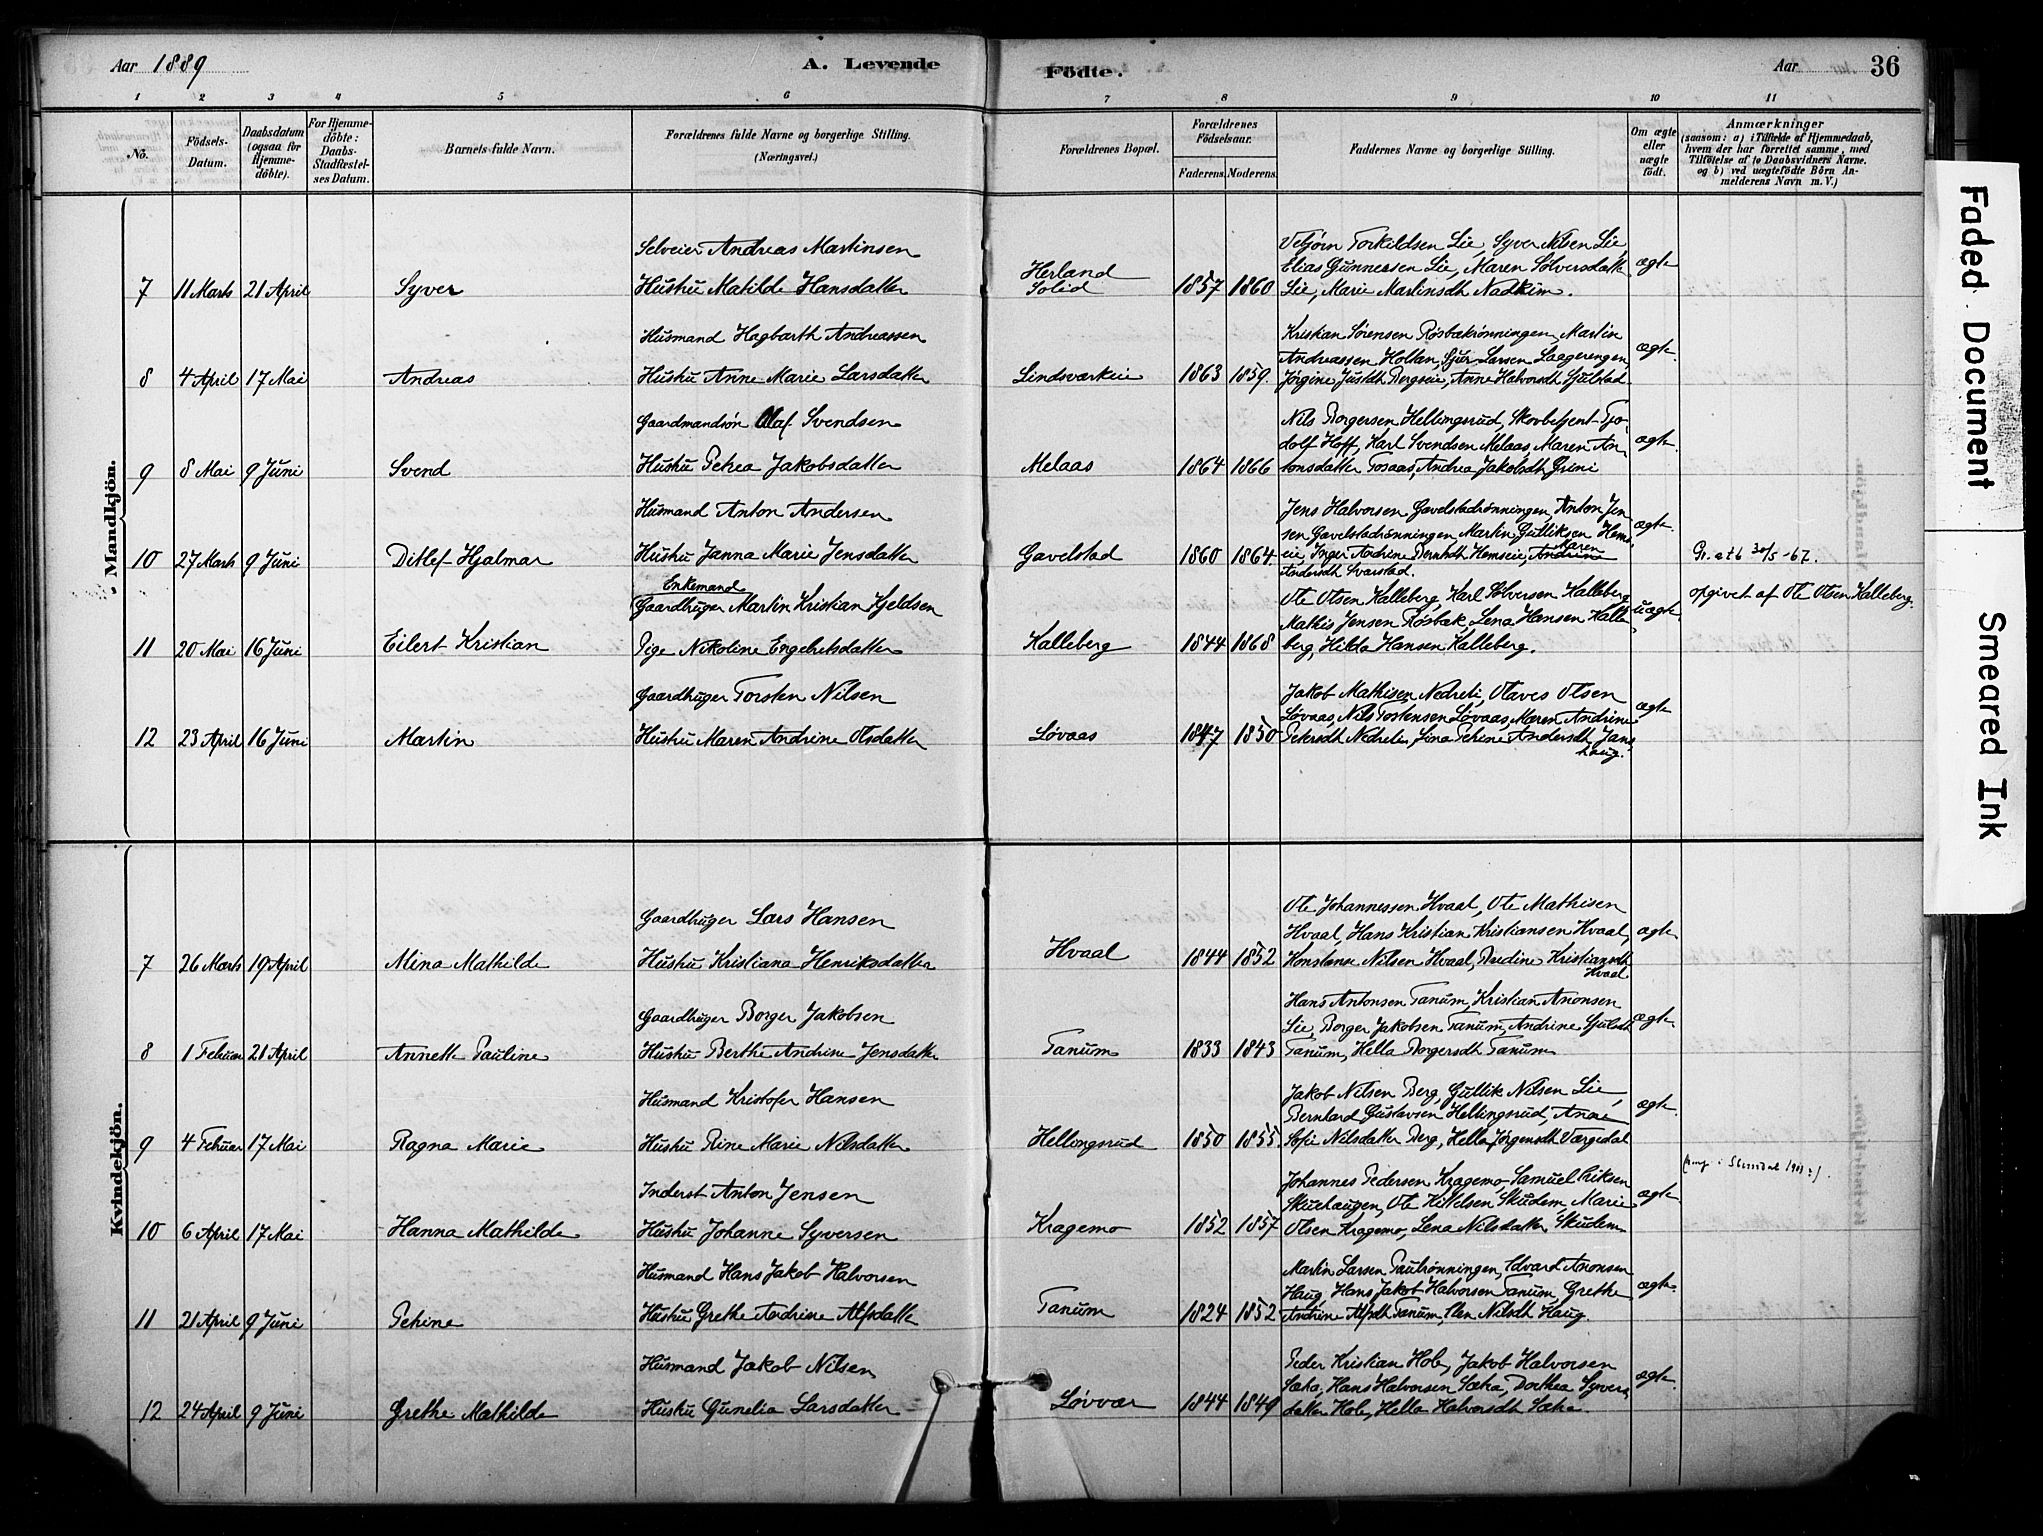 Aar 1889
A. Levende
Födte.
Aar
36
1 2 3 4 5 6 7 8 9 10 11
No.
Födsels-Datum.
Daabsdatum (ogsaa for Hjemme-döbte).
For Hjemme-döbte: Daabs-Stadfæstel-ses Datum.
Barnets fulde Navn.
Forældrenes fulde Navne og borgerlige Stilling. (Næringsvei.)
Forældrenes Bopæl.
Forældrenes Födselsaar.
Faderens. Moderens.
Faddernes Navne og borgerlige Stilling.
Om ægte eller uægte födt.
Anmærkninger
(saasom: a) i Tilfælde af Hjemmedaab,
hvem der har forrettet samme, med
Tilföielse af to Daabsvidners Navne.
og b) ved uægtefödte Börn An-
melderens Navn m. V.)
Mandkjön.
Selveier Andreas Martinsen
7 11 Marts 21 April Syver Hustru Matilde Hansdatter
Herland Solid 1857 1860
Vebjørn Torkildsen Lie, Syver Nilsen Lie
Elias Gunnersen Lie, Maren Sølversdatter
Lie, Marie Martinsdt Nadkim.
ægte
Husmand Hagbarth Andreassen
8 4 April 17 Mai Andreas Hustru Anne Marie Larsdatter
Lindsværkeie 1863 1859.
Kristian Sørensen Røsbækrønningen, Martin
Andreassen Holtan, Sjur Larsen Laagerengen,
Jørgine Justdt Bergseie, Anne Halvorsdt Fjulstad.
ægte.
Gaardmandsøn Olaf Svendsen
9 8 Mai 9 Juni Svend Hustru Petrea Jakobsdatter
Melaas 1864 1866
Nils Borgersen Hellingsrud, Skovbetjent Tjo-
dolf Hoff, Karl Svendsen Melaas, Maren An-
tonsdatter Tosaas, Andrea Jakobsdt Grini
ægte.
Husmand Anton Andersen
10 27 Marts 9 Juni Ditlef Hjalmar Hustru Janna Marie Jensdatter
Gavelstad 1860 1864.
Jens Halvorsen Gavelstadrønningen, Anton Jen-
sen Gavelstadrønningen, Martin Gulliksen Hems-
eie, Inger Andrine Berntsdt Hemseie, Maren
Andersdt Svarstad.
ægte.
Gr. att 30/5 -67.
Enkemand
Gaardbruger Martin Kristian Kjeldsen
11 20 Mai 16 Juni Eilert Kristian Pige Nikoline Engebretsdatter
Kalleberg 1844 1868
Ole Olsen Kalleberg, Karl Sølversen Kalleberg
Mathis Jensen Røsbæk, Lena Hansen Kalle-
berg, Hilda Hansen Kalleberg.
uægte.
opgivet af Ole Olsen Kalleberg.
Gaardbruger Torsten Nilsen
12 23 April 16 Juni Martin Hustru Maren Andrine Olsdatter
Løvaas 1847 1850
Jakob Mathisen Nedreli, Olaves Olsen
Løvaas, Nils Tostensen Løvaas, Maren Andrine
Petersdt Nedreli, Lina Petrine Andersdt Jans-
haug.
ægte
Kvindekjön.
Gaardbruger Lars Hansen
7 26 Marts 19 April Alina Mathilde Hustru Kristiana Henriksdatter
Hvaal 1844 1852
Ole Johannessen Hvaal, Ole Mathisen
Hvaal, Hans Kristian Kristiansen Hvaal,
Konstanse Nilsen Hvaal, Berdine Kristiansdt
Hvaal
ægte.
Gaardbruger Borger Jakobsen
8 1 Februar 21 April Annette Pauline Hustru Berthe Andrine Jensdatter
Tanum 1833 1843
Hans Antonsen Tanum, Kristian Aronsen
Lie, Borger Jakobsen Tanum, Andrine Sjulsdt
Tanum, Hella Borgersdt Tanum
ægte.
Husmand Kristofer Hansen
9 4 Februar 17 Mai Ragna Marie Hustru Rine Marie Nilsdatter
Hellingsrud 1850 1855.
Jakob Nilsen Berg, Gullik Nilsen Lie,
Berntard Gustavsen Hellingsrud, Anne
Sofie Nilsdatter Berg, Hella Jørgensdt Værgedal
ægte.
Inderst Anton Jensen
10 6 April 17 Mai Hanna Mathilde Hustru Johanne Syversen
Kragemo 1852 1857
Johannes Pedersen Kragemo, Samuel Eriksen
Skuehaugen, Ole Kittelsen Skudem, Marie
Olsen Kragemo, Lena Nilsdatter Skudem
ægte
Husmand Hans Jakob Halvorsen
11 21 April 9 Juni Petrine Hustru Grethe Andrine Alfsdatter
Tanum 1824 1852
Martin Larsen Paulrønningen, Edvard Aronsen
Haug, Hans Jakob Halvorsen Tanum, Grethe
Andrine Alfsdt Tanum, Elen Nilsdt Haug.
ægte.
Husmand Jakob Nilsen
12 24 April 9 Juni Grethe Mathilde Hustru Gunelia Larsdatter
Løvvær 1844 1849
Peder Kristian Hole, Jakob Halvorsen
Sætra, Hans Halvorsen Sætra, Dorthea Syvers-
datter Hole, Hella Halvorsdt Sætra.
ægte.
Faded Document
Smeared Ink